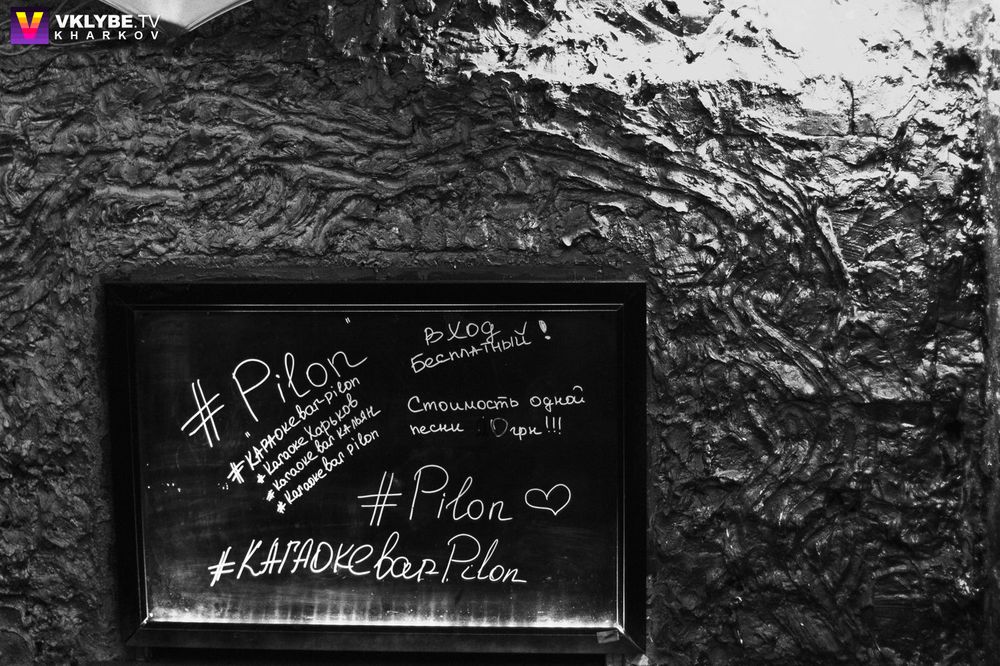 VKLYBE.TV
KHARKOV
#"Pilon"
#КАРАОКЕbar-pilon
#Караоке Харьков
#Караоке bar кальян
#Караоке bar pilon
Вход
Бесплатный!
Стоимость одной
песни грн!!!
#Pilon
#КАРАОКЕbarPilon